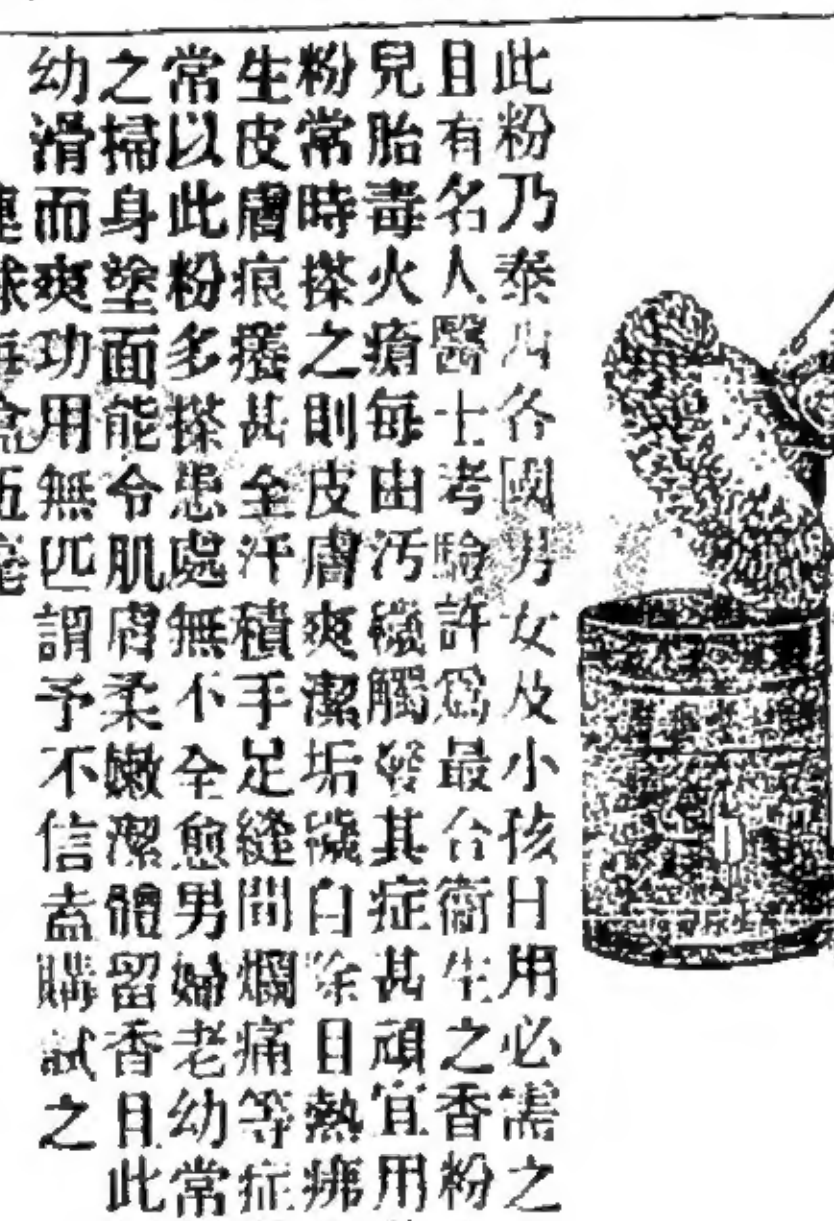 此粉乃泰西各國男女及小孩日用必需之
且有名人醫士考驗許為最合衞生之香粉
兒胎毒火瘡每由汚穢觸發其症甚頑宜用
粉常時搽之則皮膚爽潔垢穢自除且熱痱
生皮膚痕癢甚全汗積手足縫間爛痛等症
常以此粉多搽患處無不全愈男婦老幼常
之掃身塗面能令肌膚柔嫩潔體留香且此
幼滑而爽功用無匹謂予不信盍購試之